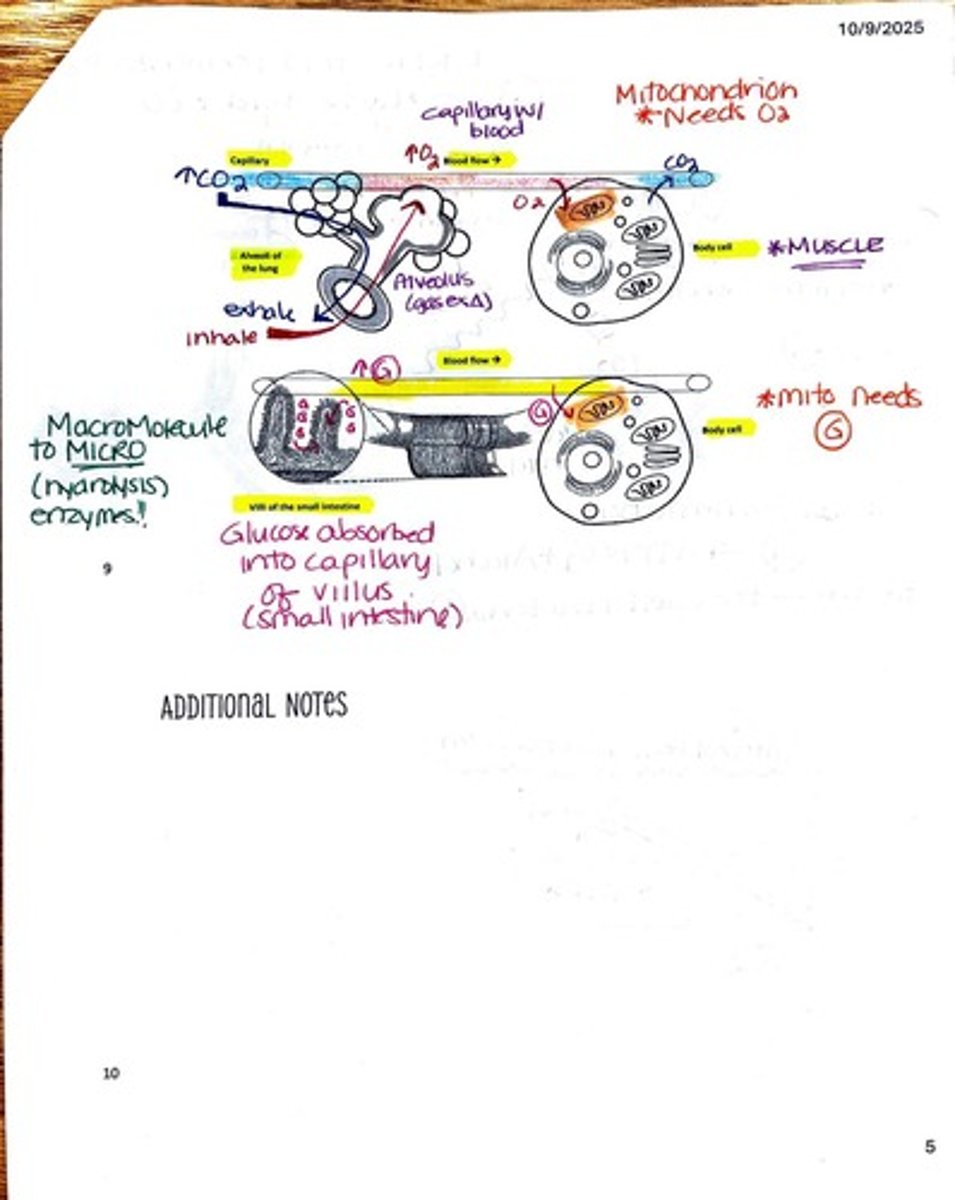 10/9/2025
Mitochondrion
*Needs O2
Capillary w/
blood
Capillary
↑O2
Blood flow →
CO2
↑CO2
O2
Body cell
*MUSCLE
Alveoli of
the lung
Alveolus
(gas exΔ)
exhale
inhale
Blood flow →
↑G
G
G
G
G
G
G
*Mito Needs
G
Body cell
MacroMolecule
to MICRO
(hydrolysis)
enzymes!!
Villi of the small intestine
Glucose absorbed
into capillary
of villus
(small intestine)
9
ADDITIONAL NOTES
10
5